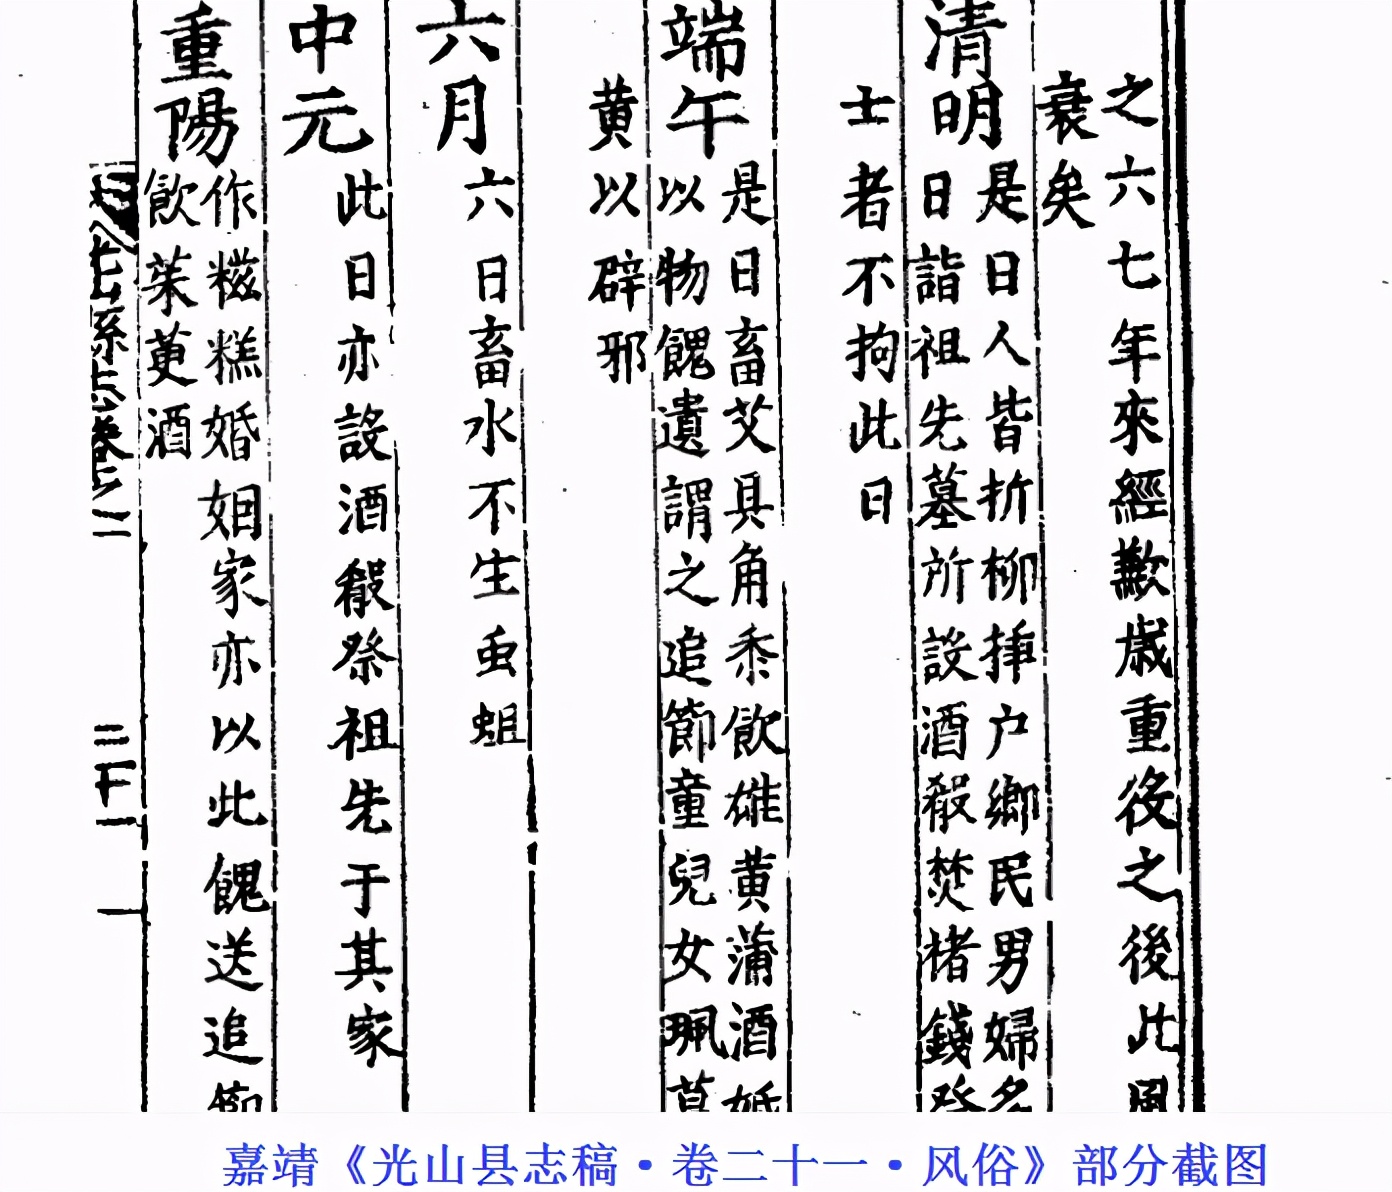 之六七年來經歉歲重役之後此風
衰矣
清明
是日人皆折柳挿户鄉民男婦多
日詣祖先墓所設酒殽焚楮錢發
士者不拘此日
端午
是日畜艾具角黍飲雄黄蒲酒婚
以物餽遺謂之追節童兒女珮
黄以辟邪
六月
六日畜水不生虫蛆
中元
此日亦設酒殽祭祖先于其家
重陽
作糍糕婚姻家亦以此餽送追節
飲茱萸酒
縣志卷之二
二十一
嘉靖《光山县志稿·卷二十一·风俗》部分截图